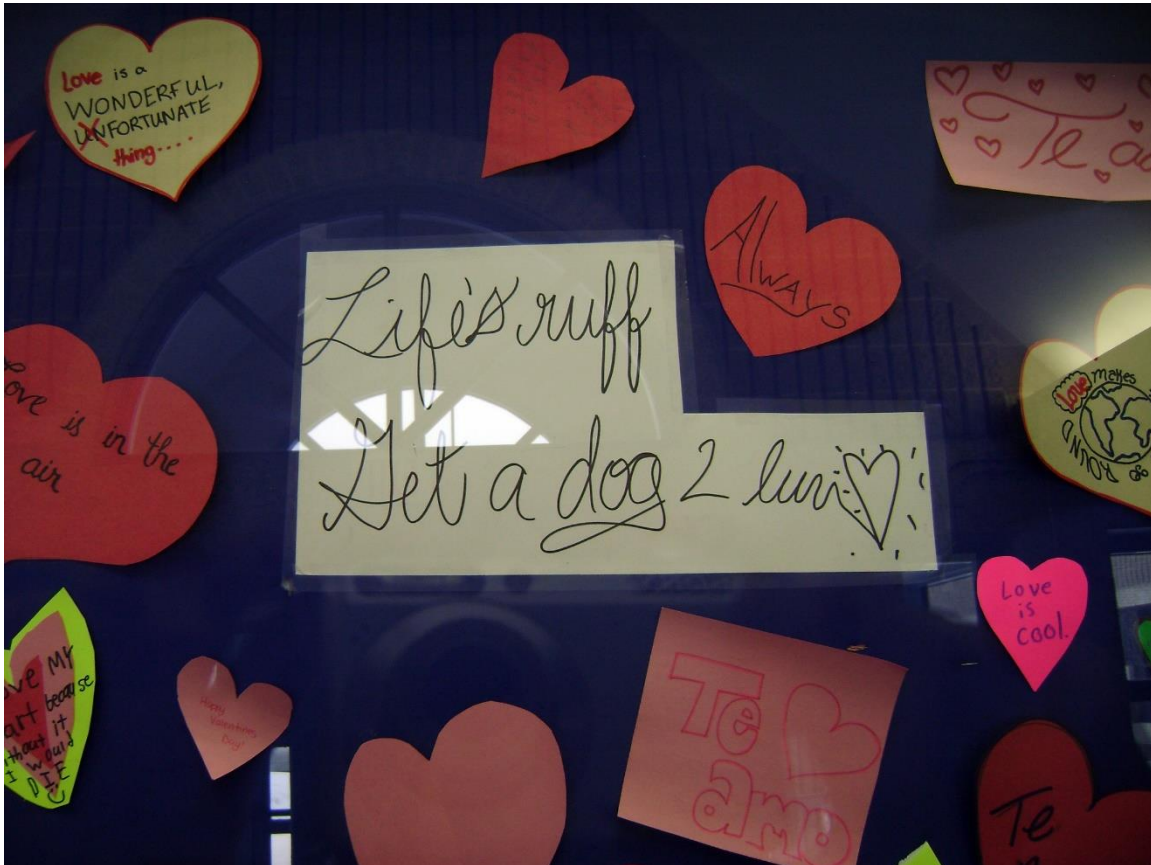 Love is a
WONDERFUL,
UNFORTUNATE
thing....
Te
Always
Life's ruff
Get a dog 2 luv
ove is in the
air
Love makes
go ROUND
Love
is
cool.
My
because
it
I would
DIE
Happy
Valentines
Day!
Te
amo
Te